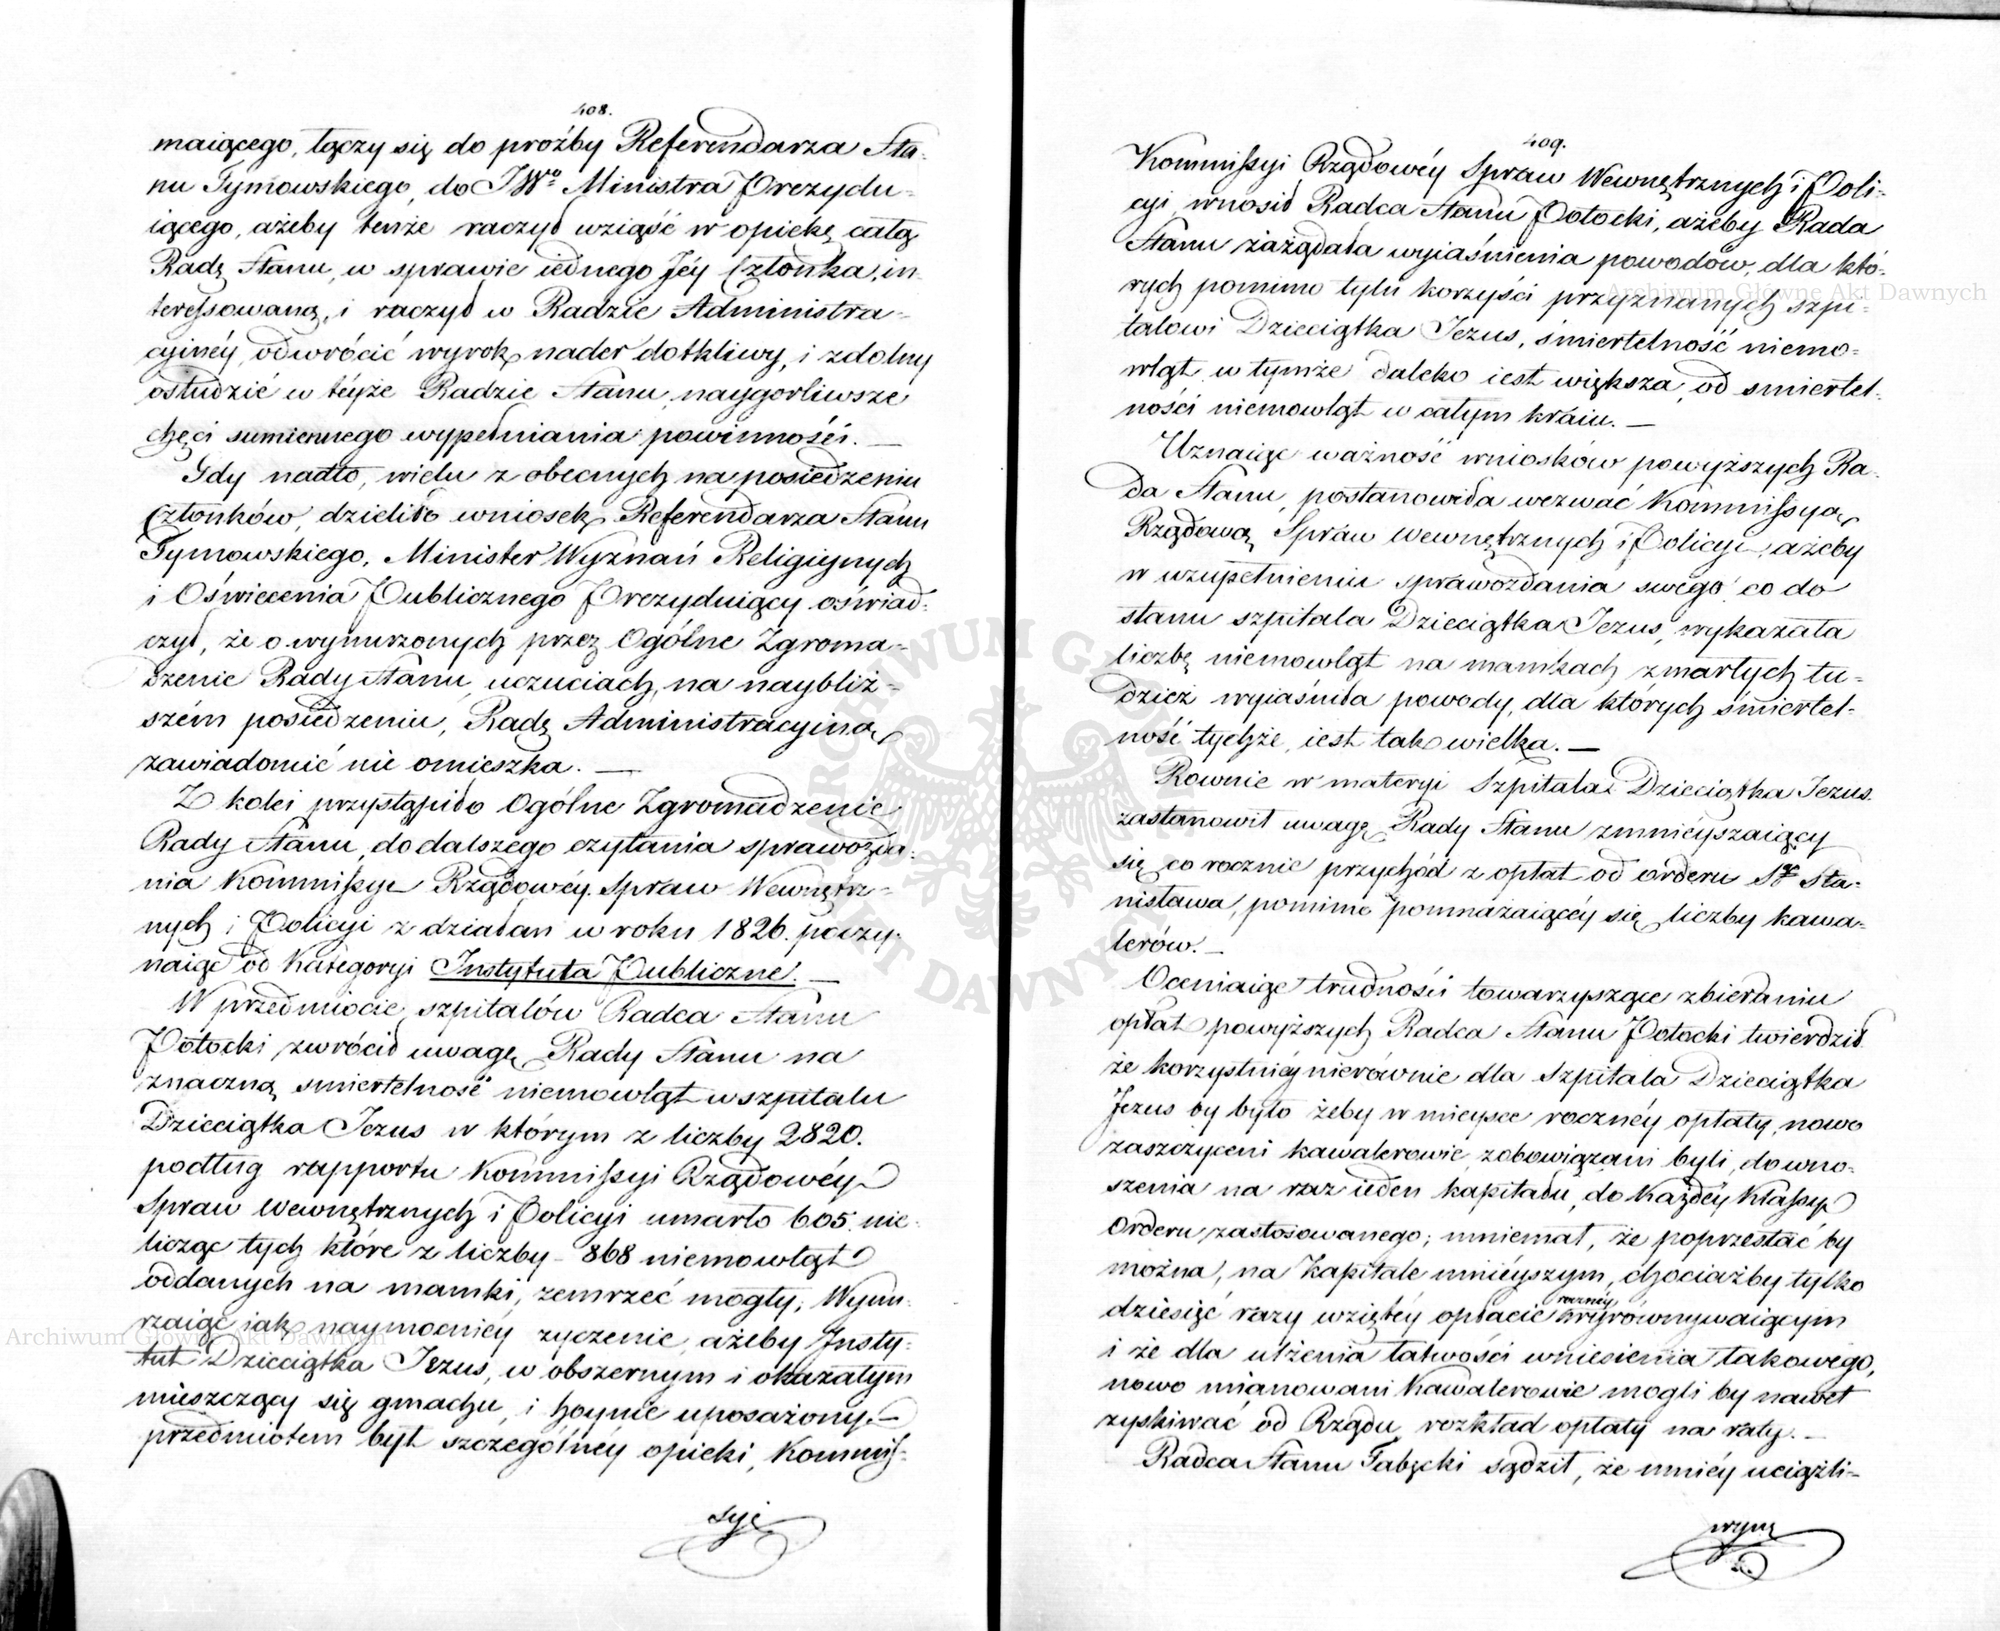 408.
maiącego, łączy się do proźby Referendarza Sta-
nu Tymowskiego, do JWº Ministra Prezydu-
iącego, ażeby tenże raczył wziąść w opiekę całą
Radę Stanu, w sprawie iednego Jéy Członka, in-
teressowaną, i raczył w Radzie Administra-
cyinéy, odwrócić wyrok, nader dotkliwy, i zdolny
ostudzić w téyże Radzie Stanu, naygorliwsze
chęci sumiennego wypełniania powinności. —
Gdy nadto, wielu z obecnych na posiedzeniu
Członków, dzieliło wniosek Referendarza Stanu
Tymowskiego, Minister Wyznań Religiynych
i Oświecenia Publicznego Prezyduiący oświad-
czył, że o wynurzonych przez Ogólne Zgroma-
dzenie Rady Stanu, uczuciach, na naybliż-
szém posiedzeniu, Radę Administracyiną,
zawiadomić nie omieszka. —
Z kolei przystąpiło Ogólne Zgromadzenie
Rady Stanu, do dalszego czytania sprawozda-
nia Kommissyi Rządowéy Spraw Wewnętrz-
nych i Policyi z działań w roku 1826. poczy-
naiąc od Kategoryi Instytuta Publiczne. —
W przedmiocie szpitalów Radca Stanu
Potocki zwrócił uwagę Rady Stanu na
znaczną śmiertelność niemowląt w szpitalu
Dzieciątka Jezus w którym z liczby 2820.
podług rapportu Kommissyi Rządowéy
Spraw Wewnętrznych i Policyi umarło 605. nie-
licząc tych które z liczby 868 niemowląt
oddanych na mamki, zemrzeć mogły; Wynu-
rzaiąc iak naymocniéy życzenie, ażeby Insty-
tut Dzieciątka Jezus, w obszernym i okazałym
mieszczący się gmachu, i hoynie uposażony,
przedmiotem był szczególnéy opieki, Kommis-
syi
409.
Kommissyi Rządowéy Spraw Wewnętrznych i Poli-
cyi, wnosił Radca Stanu Potocki, ażeby Rada
Stanu zażądała wyiaśnienia powodów, dla któ-
rych pomimo tylu korzyści przyznanych szpi-
talowi Dzieciątka Jezus, śmiertelność niemo-
wląt w tymże daleko iest większa, od śmiertel-
ności niemowląt w całym kraiu. —
Uznaiąc ważność wniosków powyższych Ra-
da Stanu, postanowiła wezwać Kommissyą
Rządową Spraw Wewnętrznych i Policyi, ażeby
w uzupełnieniu sprawozdania swego co do
stanu szpitala Dzieciątka Jezus, wykazała
liczbę niemowląt na mamkach zmarłych tu-
dzież wyiaśniła powody, dla których śmiertel-
ność tychże, iest tak wielka. —
Rownie w materyi Szpitala Dzieciątka Jezus.
zastanowił uwagę Rady Stanu zmnieyszaiący
się co rocznie przychód z opłat od orderu Sgo Sta-
nisława, pomimo pomnażaiącéy się liczby kawa-
lerów. —
Oceniaiąc trudności towarzyszące zbieraniu
opłat powyższych Radca Stanu Potocki twierdził
że korzystniéy nierównie dla Szpitala Dzieciątka
Jezus by było żeby w mieysce rocznéy opłaty, nowo
zaszczyceni kawalerowie, zobowiązani byli, do wno-
szenia na raz ieden kapitału, do każdéy klassy
Orderu zastosowanego; mniemał, że poprzestać by
można, na kapitale mnieyszym, chociażby tylko
dziesięć razy wziętéy opłacie rocznéy wyrównywaiącym
i że dla ulżenia łatwości wniesienia takowego,
nowo mianowani Kawalerowie mogli by nawet
zyskiwać od Rządu, rozkład opłaty na raty. —
Radca Stanu Fabęcki sądził, że mniéy uciążli-
wym
Archiwum Główne Akt Dawnych
Archiwum Główne Akt Dawnych
ARCHIWUM GŁÓWNE AKT DAWNYCH